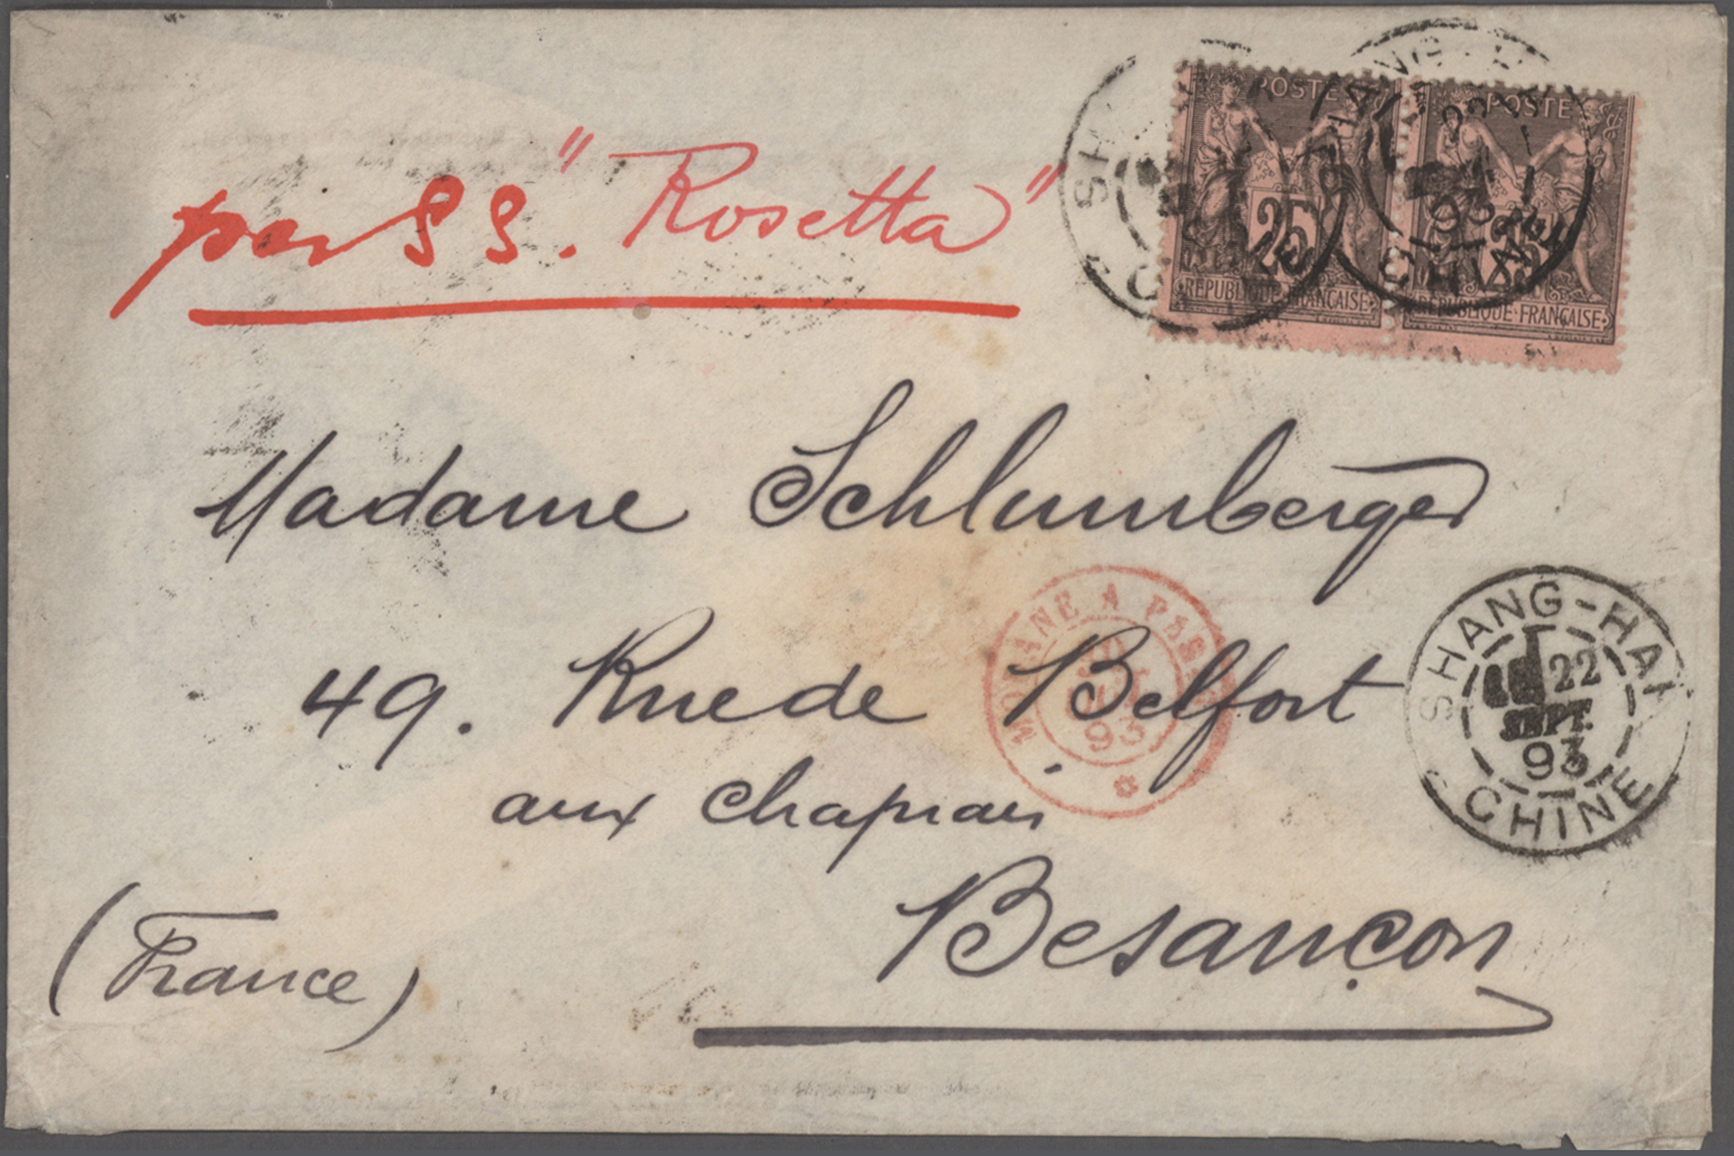 per SS. "Rosetta"
POSTE
25
REPUBLIQUE FRANÇAISE
POSTE
25
REPUBLIQUE FRANÇAISE
SHANG-HAI
93
CHINE
Madame Schlumberger
49. Rue de Belfort
aux Chaprais
Besançon
(France)
MODANE A PARIS
93
SHANG-HAI
22
SEPT.
93
CHINE